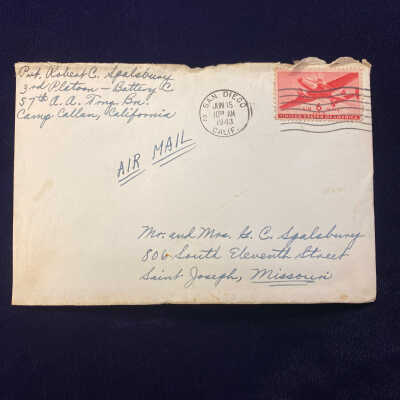 Pvt. Robert C. Spalsbury
3rd Platoon - Battery C
57th A. A. Trng Bn.
Camp Callan, California
SAN DIEGO
JUN 15
1943
CALIF.
6
UNITED STATES OF AMERICA
AIR MAIL
Mr. and Mrs. G. C. Spalsbury
806 South Eleventh Street
Saint Joseph, Missouri